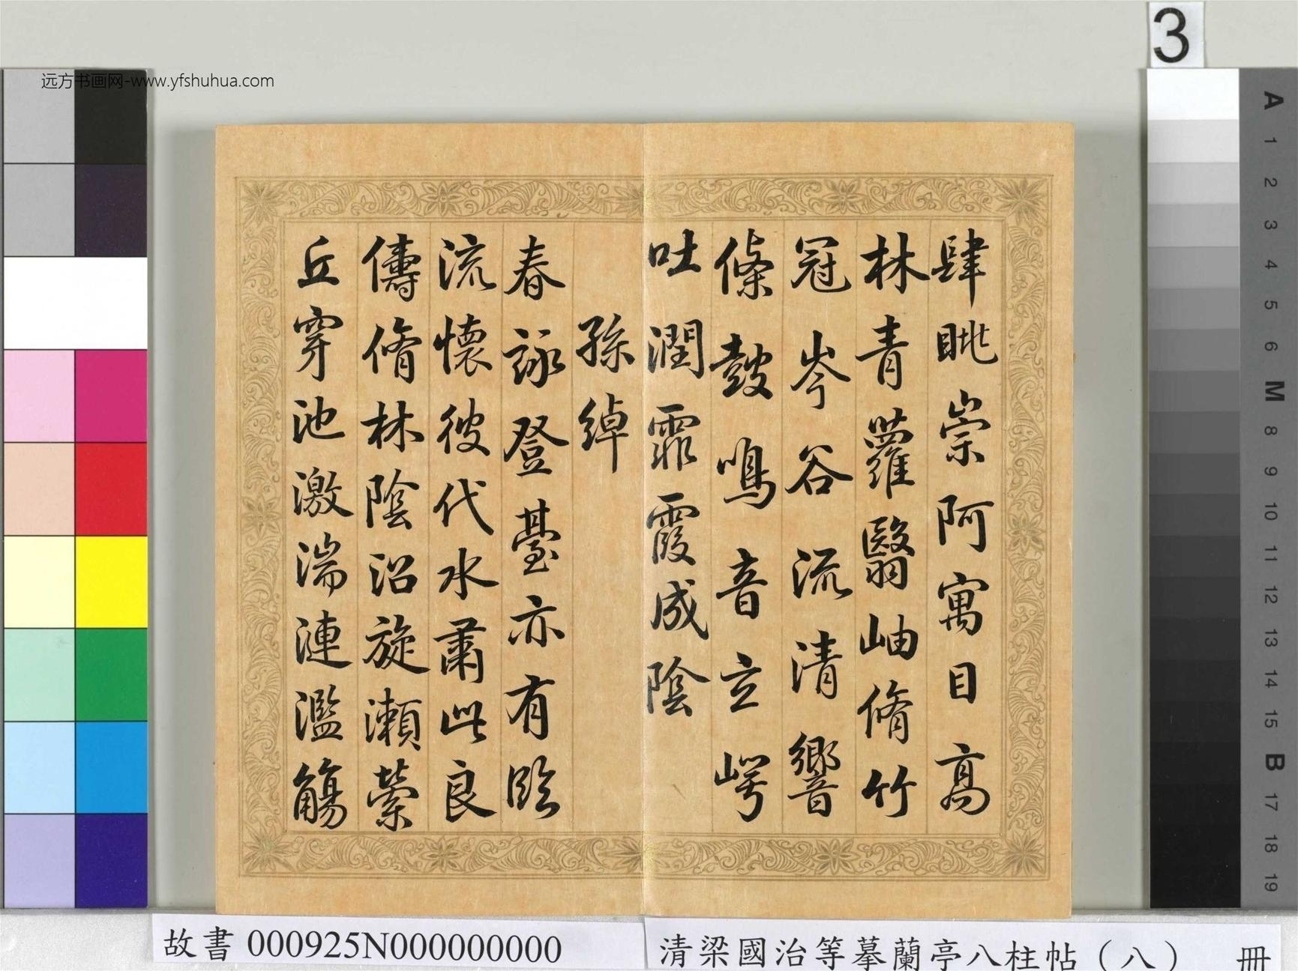 远方书画网-www.yfshuhua.com
3
肆眺崇阿寓目高
林青蘿翳岫脩竹
冠岑谷流清響
條鼓鳴音立崿
吐潤霏霞成陰
孫綽
春詠登臺亦有臨
流懷彼伐木肅此良
儔脩林陰沼旋瀬縈
丘穿池激湍連濫觴
A
1
2
3
4
5
6
M
8
9
10
11
12
13
14
15
B
17
18
19
故書 000925N000000000
清梁國治等摹蘭亭八柱帖（八） 冊